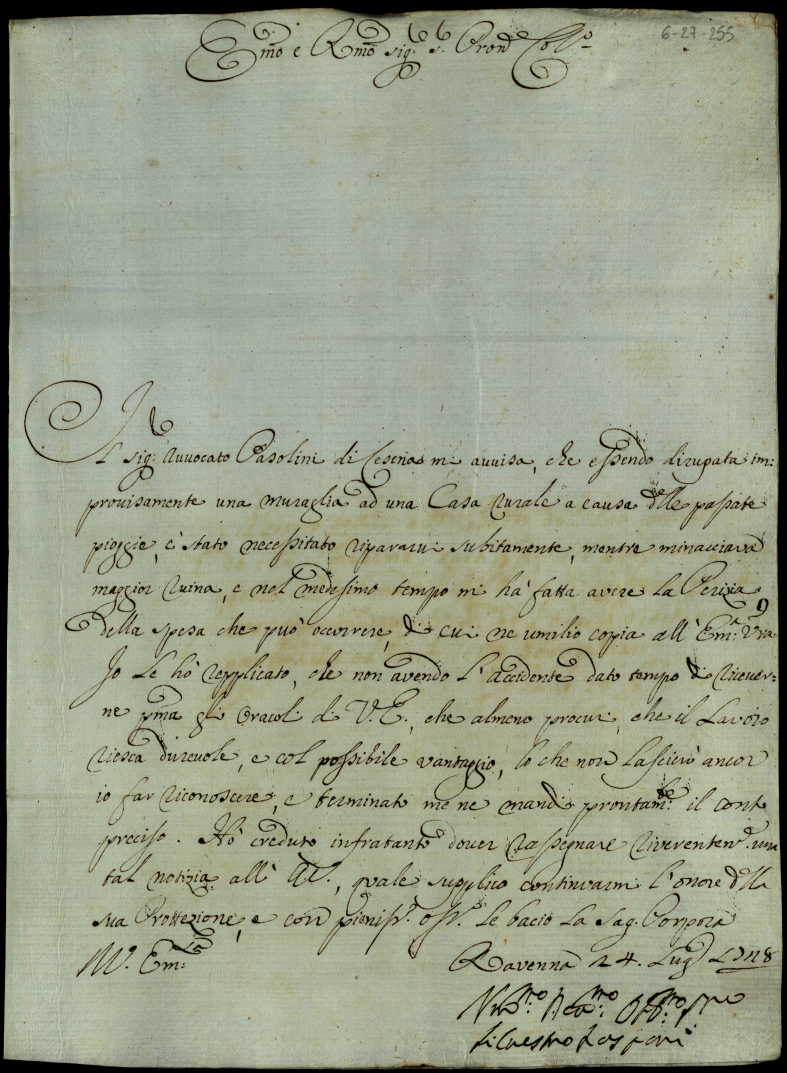 6-27-255
Emo e Rmo Sig. S. Pron Col.o
Il Sig: Avvocato Pasolini di Cesena mi avvisa, che essendo dirupata im:
provisamente una muraglia ad una Casa rurale a causa delle passate
pioggie, è stato necessitato ripararvi subitamente, mentre minacciava
maggior ruina, e nel medesimo tempo mi hà fatta avere la Perizia
della spesa che può occorrere, di cui ne umilio copia all' Em: Vra.
Io le hò replicato, che non avendo l'accidente dato tempo di ricever:
ne pma gli oracoli di V. E., che almeno procuri, che il Lavoro
riesca durevole, e col possibile vantaggio, lo che non lascierò ancor
io far riconoscere, e terminato me ne mandi prontam.te il conto
preciso. Hò creduto infratanto dover rassegnare riverentem.e una
tal notizia all' , quale supplico continuarmi l'onore della
sua Protezione, e con pieniss.o oss.o le bacio la Sag. Porpora
V. Em:za Ravenna 24. Lug.o 1728
Um.mo Dev.mo Obb.mo Sre
Silvestro Rasponi